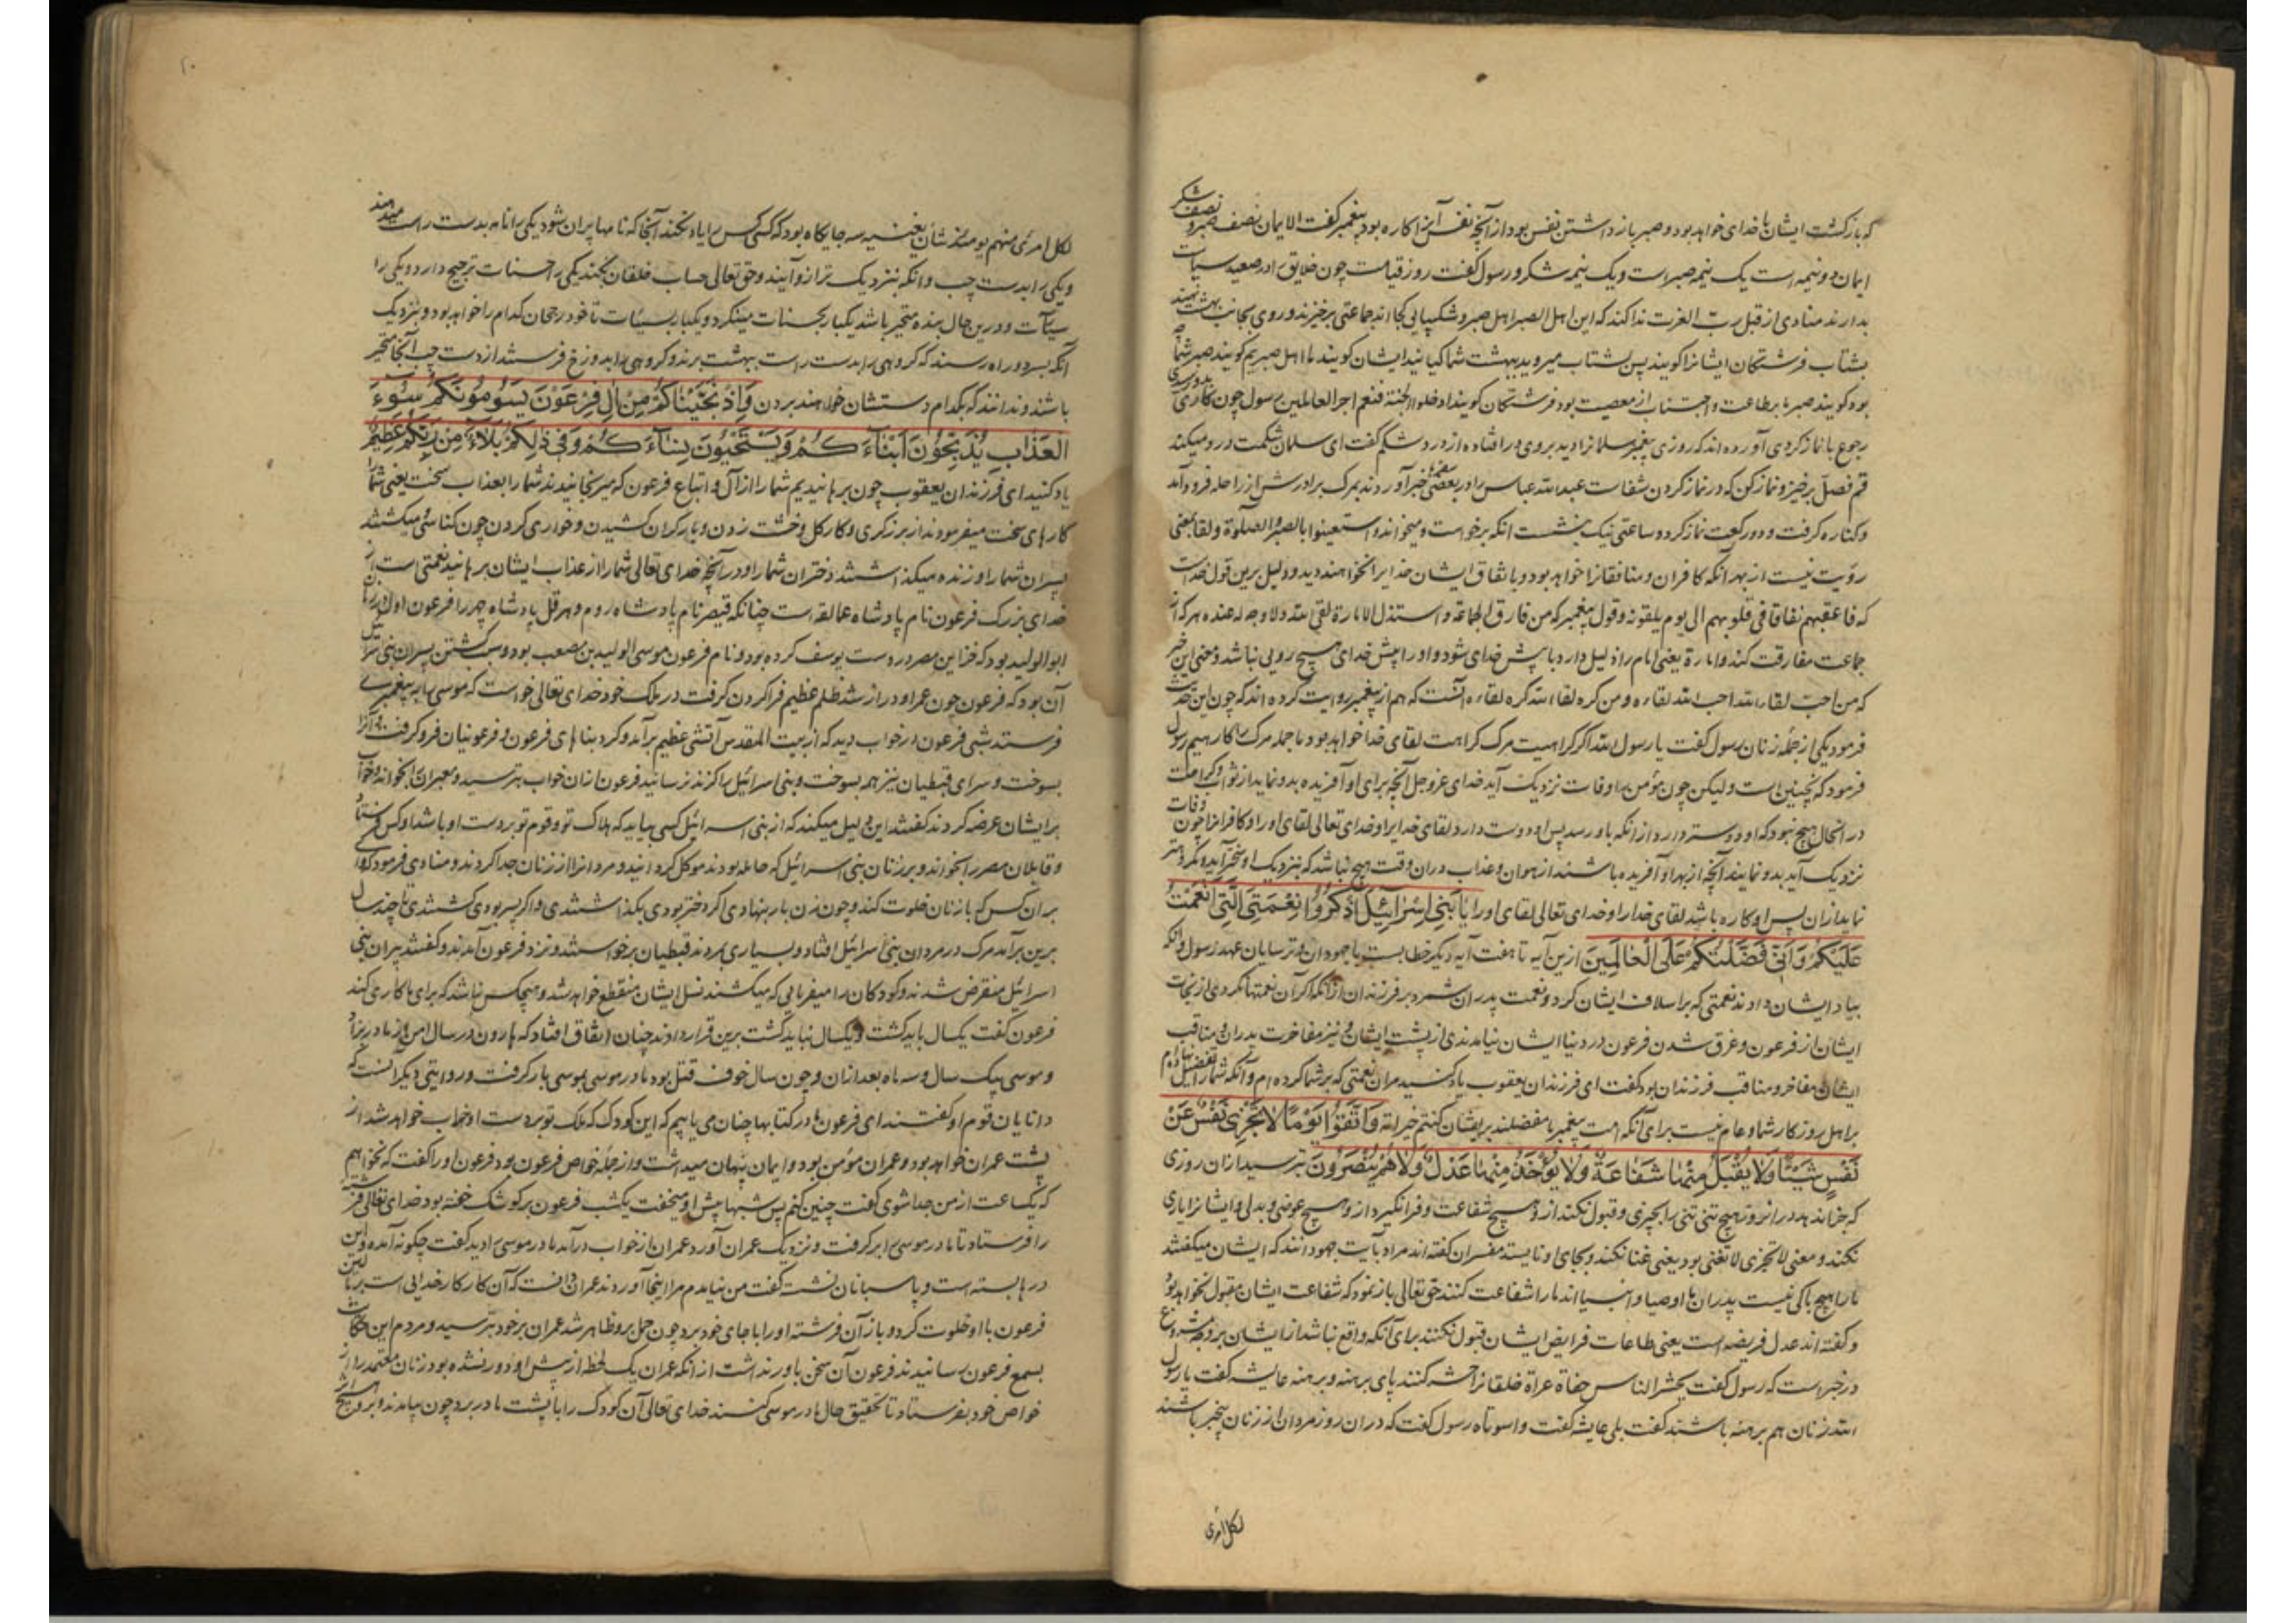 که بازگشت ایشان با خدای خواهد بود و صبر باز داشتن نفس بود از آنچه نفس آنرا کاره بود پیغمبر گفت الایمان نصف صبر و نصف شکر
ایمان دو نیمه است یک نیمه صبر است و یک نیمه شکر و رسول گفت روز قیامت چون خلایق را در صعید سیاست
بدارند منادی از قبل رب العزت ندا کند که این اهل الصبر اهل صبر و شکیبایی کجااند جماعتی برخیزند و روی بجانب بهشت نهند
بشتاب فرشتگان ایشانرا گویند پس بشتاب میروید ببهشت شما کیانید ایشان گویند ما اهل صبریم گویند صبر شما چه
بود گویند صبر ما بر طاعت و اجتناب از معصیت بود فرشتگان گویند ادخلوا الجنة فنعم اجر العالمین رسول چون کاری بدو رسیدی
رجوع با نماز کردی آورده اند که روزی پیغمبر سلمانرا دید بروی در افتاده از درد شکم گفت ای سلمان شکمت درد میکند
قم فصل برخیز و نماز کن که در نماز کردن شفاست عبد الله عباس را در بعضی سفرها خبر آوردند بمرگ برادرش از راحله فرود آمد
و کناره گرفت و دو رکعت نماز کرد و ساعتی نیک بنشست انگه برخواست و میخواند و استعینوا بالصبر و الصلوة و لقا بمعنی
رؤیت نیست از بهر آنکه کافران و منافقانرا خواهد بود و باتفاق ایشان خدایرا نخواهند دید و دلیل برین قول خداست
که فاعقبهم نفاقا فی قلوبهم الی یوم یلقونه و قول پیغمبر که من فارق الجماعة و استذل الامارة لقی الله و لا وجه له عنده هر که از
جماعت مفارقت کند و امارة یعنی امام را ذلیل دارد با پیش خدای شود و او را پیش خدای هیچ رویی نباشد و معنی این خبر
که من احب لقاء الله احب الله لقاءه و من کره لقاء الله کره لقاءه آنست که هم از پیغمبر روایت کرده اند که چون این حدیث
فرمود یکی از جمله زنان رسول گفت یا رسول الله اگر کراهیت مرگ کراهت لقای خدا خواهد بود ما جمله مرگ را کارهیم رسول
فرمود که نچنین است ولیکن چون مؤمن را وفات نزدیک آید خدای عز و جل آنچه برای او آفریده بدو نماید از ثواب و کرامت
در آنحال هیچ نبود که او دوستر دارد از انکه باو رسد پس او دوست دارد لقای خدایرا و خدای تعالی لقای او را و کافرانرا چون وفات
نزدیک آید بدو نمایند آنچه از بهر او آفریده باشند از هوان و عذاب دران وقت هیچ نباشد که بنزدیک او
نماید ازان پس او کاره باشد لقای خدا را و خدای تعالی لقای او را یَا بَنِی اِسْرَائِیلَ اذْکُرُوا نِعْمَتِیَ الَّتِی اَنْعَمْتُ
عَلَیْکُمْ وَ اَنّی فَضَّلْتُکُمْ عَلَی الْعَالَمِینَ ازین آیه تا هفت آیه دیگر خطابست با جهودان و ترسایان عهد رسول و آنکه
بیاد ایشان داد ند نعمتی که بر اسلاف ایشان کرد و نعمت پدران شمرد بر فرزندان از آنکه اگر آن نعمتها نکردی از نجات
ایشان از فرعون و غرق شدن فرعون در دنیا ایشان نیامدندی از پشت ایشان و نیز مفاخرت پدران و مناقب
ایشان مفاخر و مناقب فرزندان بود گفت ای فرزندان یعقوب یاد کنید مران نعمتی که بر شما کرده ام و آنکه شمارا تفضیل دادم
بر اهل روزگار شما و عام نیست برای آنکه امت پیغمبر ما مفضلند بریشان کنتم خیر امة وَ اتَّقُوا یَوْمًا لَا تَجْزِی نَفْسٌ عَنْ
نَفْسٍ شَیْئًا وَ لَا یُقْبَلُ مِنْهَا شَفَاعَةٌ وَ لَا یُؤْخَذُ مِنْهَا عَدْلٌ وَ لَا هُمْ یُنْصَرُونَ بترسید ازان روزی
که جزا ندهد دران روز هیچ تنی تنی را بچیزی و قبول نکند ازو هیچ شفاعت و فرا نگیرد ازو هیچ عوضی و بدلی و ایشانرا یاری
نکنند و معنی لا تجزی لا تغنی بود یعنی غنا نکند و بجای او نایستد مفسران گفته اند مراد بآیت جهودانند که ایشان میگفتند
ما را هیچ باکی نیست پدران ما اوصیا و انبیا اند ما را شفاعت کنند حق تعالی باز نمود که شفاعت ایشان مقبول نخواهد بود
و گفته اند عدل فریضه است یعنی طاعات فرایض ایشان قبول نکنند برای آنکه واقع نباشد از ایشان بر وجه مشروع
در خبر است که رسول گفت یحشر الناس حفاة عراة خلقانرا حشر کنند پای برهنه و برهنه عایشه گفت یا رسول
الله زنان هم برهنه باشند گفت بلی عایشه گفت واسوتاه رسول گفت که دران روز مردان از زنان بیخبر باشند
لکل امری
لکل امرئ منهم یومئذ شأن یغنیه سه جایگاه بود که کسی کس را یاد نکند آنجا که نامها پران شود یکی را نامه بدست راست میدهند
و یکی را بدست چپ و انکه بنزدیک ترازو آیند و حق تعالی حساب خلقان بکند یکی را حسنات ترجیح دارد و یکی را
سیئات و درین حال بنده متحیر باشد یکبار بحسنات مینگرد و یکبار بسیئات تا خود رجحان کدام را خواهد بود و نزدیک
آنکه بسر دو راه رسند که گروهی را بدست راست ببهشت برند و گروهی را بدوزخ فرستند از دست چپ آنجا متحیر
باشند و ندانند که بکدام دستشان خواهند بردن وَ اِذْ نَجَّیْنَاکُمْ مِنْ اٰلِ فِرْعَوْنَ یَسُومُونَکُمْ سُوءَ
الْعَذَابِ یُذَبِّحُونَ اَبْنَاءَکُمْ وَ یَسْتَحْیُونَ نِسَاءَکُمْ وَ فِی ذٰلِکُمْ بَلَاءٌ مِنْ رَبِّکُمْ عَظِیمٌ
یاد کنید ای فرزندان یعقوب چون برهانیدیم شما را از آل و اتباع فرعون که میرنجانیدند شما را بعذاب سخت یعنی شما را
کارهای سخت میفرمودند از برزگری و کار گل و خشت زدن و بار گران کشیدن و خواری کردن چون کناسی میکشتند
پسران شما را و زنده میگذاشتند دختران شما را و در آنچه خدای تعالی شما را از عذاب ایشان برهانید نعمتی است از
خدای بزرگ فرعون نام پادشاه عمالقه است چنانکه قیصر نام پادشاه روم و هرقل پادشاه
ابو الولید بود که خزاین مصر در دست یوسف کرده بود و نام فرعون موسی الولید بن مصعب بود و سبب کشتن پسران بنی اسرائیل
آن بود که فرعون چون عمر او دراز شد ظلم عظیم فرا کردن گرفت در ملک خود خدای تعالی خواست که موسی را به پیغمبری
فرستد شبی فرعون در خواب دید که از بیت المقدس آتشی عظیم برآمد و گرد بناهای فرعون و فرعونیان فرو گرفت و آنرا
بسوخت و سرای قبطیان نیز همه بسوخت و بنی اسرائیل را گزند نرسانید فرعون ازان خواب بترسید و معبران را بخواند و خواب
برایشان عرضه کرد ند گفتند این دلیل میکند که از بنی اسرائیل کسی بیاید که هلاک تو و قوم تو بر دست او باشد او کس فرستاد
و قابلان مصر را بخواند و بر زنان بنی اسرائیل که حامله بودند موکل گردانید و مردانرا از زنان جدا کردند و منادی فرمود که وای
بران کس که با زنان خلوت کند و چون زن بار بنهادی اگر دختر بودی بگذاشتندی و اگر پسر بودی کشتندی تا چند سال
برین برآمد مرگ در مردان بنی اسرائیل افتاد و بسیاری بمردند قبطیان برخواستند و نزد فرعون آمدند و گفتند پیران بنی
اسرائیل منقرض شدند و کودکان را میفرمایی که میکشند نسل ایشان منقطع خواهد شد و هیچکس نباشد که برای ما کاری کند
فرعون گفت یکسال باید کشت و یکسال نباید کشت برین قرار دادند چنان اتفاق افتاد که هارون در سال امن از مادر بزاد
و موسی بیک سال و سه ماه بعد ازان و چون سال خوف قتل بود مادر موسی بموسی بار گرفت و روایتی دیگر آنست که
دانایان قوم او گفتند ای فرعون ما در کتابها چنان می یابیم که این کودک که ملک تو بر دست او خراب خواهد شد از
پشت عمران خواهد بود و عمران مؤمن بود و ایمان پنهان میداشت و از جمله خواص فرعون بود فرعون او را گفت که نخواهم
که یکساعت از من جدا شوی گفت چنین کنم پس شبها پیش او میخفت یکشب فرعون بر کوشک خفته بود خدای تعالی فرشته
را فرستاد تا مادر موسی را برگرفت و نزدیک عمران آورد عمران از خواب درآمد مادر موسی را دید گفت چگونه آمده و این
درها بسته است و پاسبانان نشسته گفت من نیامدم مرا اینجا آوردند عمران دانست که آن کار کار خدایی است
فرعون با او خلوت کرد و باز آن فرشته او را با جای خود برد چون حمل برو ظاهر شد عمران بر خود بترسید و مردم این حکایت
بسمع فرعون رسانیدند فرعون آن سخن باور نداشت از انکه عمران یک لحظه از پیش او دور نشده بود زنان معتمد را از
خواص خود بفرستاد تا تحقیق حال مادر موسی کنند خدای تعالی آن کودک را با پشت مادر برد چون بیامدند برو هیچ اثر